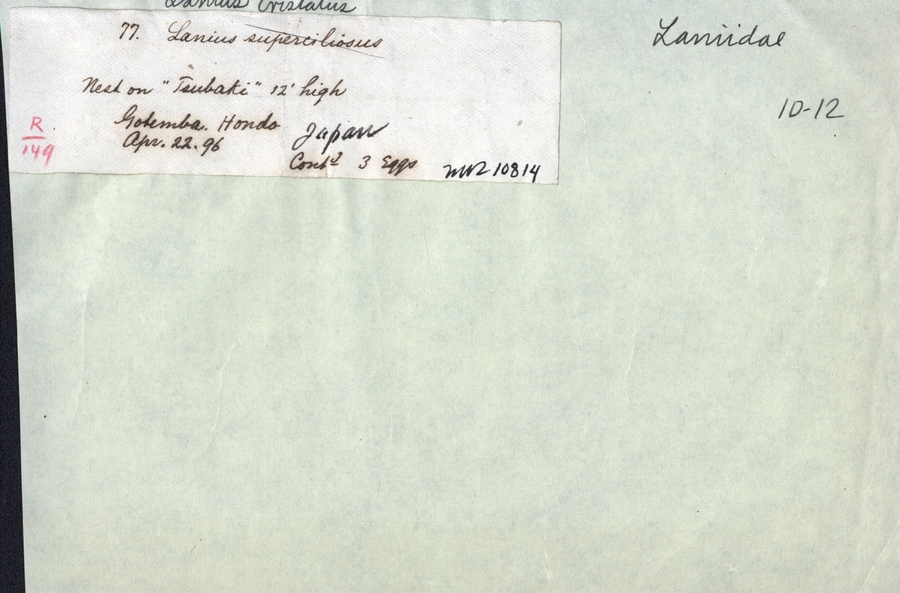 Lanius cristatus
77. Lanius superciliosus
Nest on "Tsubaki" 12' high
Gotemba. Hondo
Japan
Apr. 22. 96
Contd 3 Eggs
10814
R
149
Laniidae
10-12